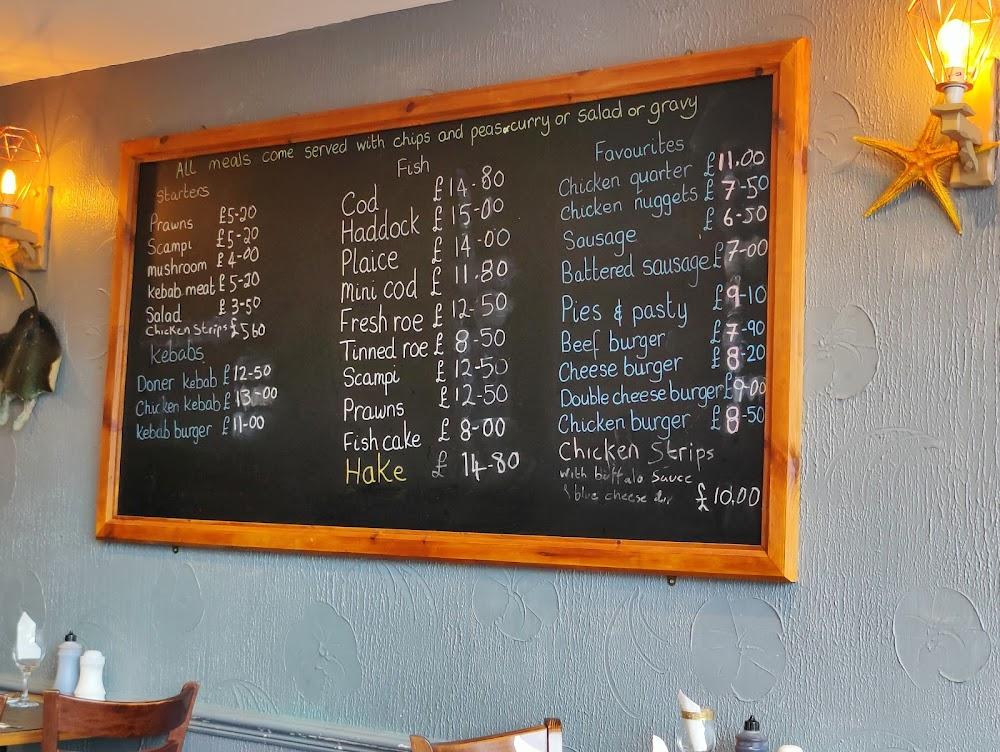 All meals come served with chips and peas or curry or salad or gravy
Starters
Prawns £5-20
Scampi £5-20
mushroom £4-00
kebab meat £5-20
Salad £3-50
Chicken Strips £5.60
Kebabs
Doner kebab £12-50
Chicken kebab £13-00
kebab burger £11-00
Fish
Cod £14-80
Haddock £15-00
Plaice £14-00
Mini cod £11.80
Fresh roe £12-50
Tinned roe £8-50
Scampi £12-50
Prawns £12-50
Fish cake £8-00
Hake £14-80
Favourites
Chicken quarter £11.00
Chicken nuggets £7-50
Sausage £6-50
Battered sausage £7-00
Pies & pasty £9-10
Beef burger £7-90
Cheese burger £8-20
Double cheese burger £9-00
Chicken burger £8-50
Chicken Strips
with buffalo Sauce
& blue cheese £10.00